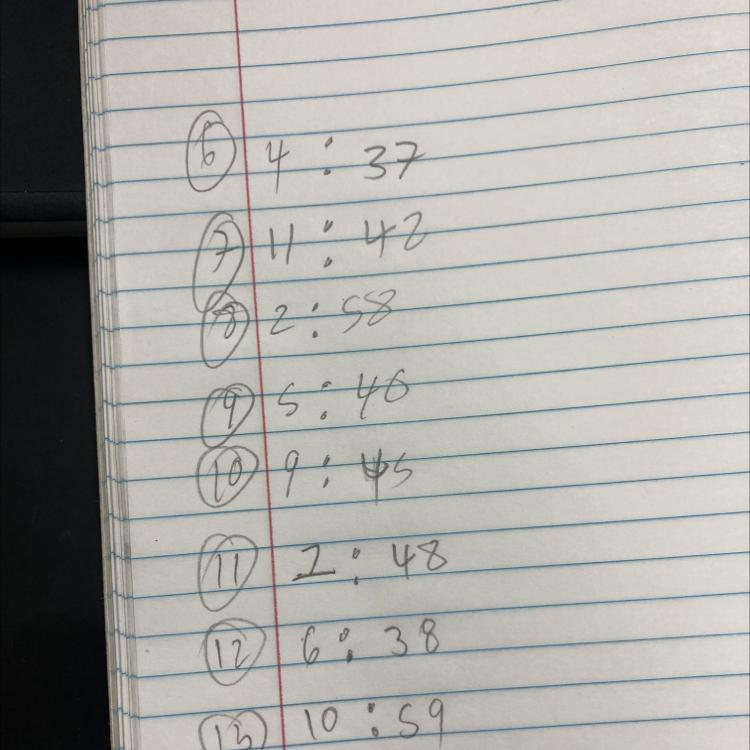 6 4 : 37
7 11 : 42
8 2 : 58
9 5 : 46
10 9 : 45
11 1 : 48
12 6 : 38
13 10 : 59